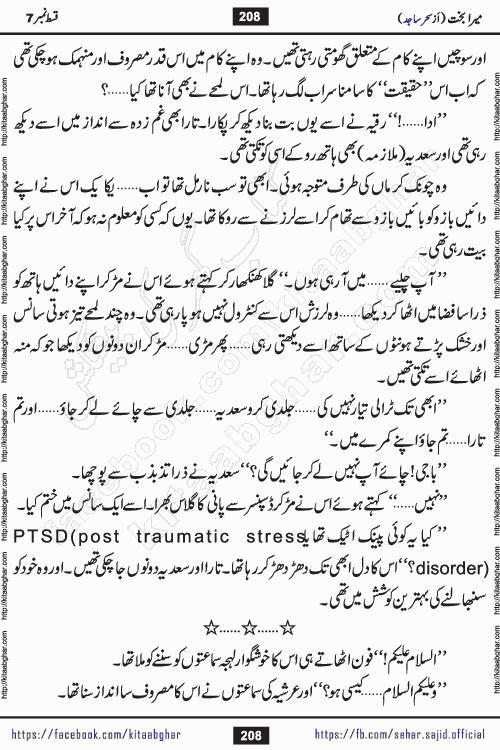 میرا بخت (از سحر ساجد) 208 قسط نمبر 7
اور سوچیں اپنے کام کے متعلق گھومتی رہتی تھیں۔ وہ اپنے کام میں اس قدر مصروف اور منہمک ہو چکی تھی
کہ اب اس ”حقیقت“ کا سامنا سراب لگ رہا تھا۔ اس لمحے نے بھی آنا تھا کیا......؟
”ادا......!“ رقیہ نے اسے یوں بت بنا دیکھ کر پکارا۔ تارا بھی غم زدہ سے انداز میں اسے دیکھ
رہی تھی اور سعدیہ (ملازمہ) بھی ہاتھ روکے اسی کو تکتی تھی۔
وہ چونک کر ماں کی طرف متوجہ ہوئی۔ ابھی تو سب نارمل تھا تو اب...... یکا یک اس نے اپنے
دائیں بازو کو بائیں بازو سے تھام کر اسے لرزنے سے روکا تھا۔ یوں کہ کسی کو معلوم نہ ہو کہ آخر اس پر کیا
بیت رہی تھی۔
”آپ چلیے ......میں آ رہی ہوں۔“ گلا کھنکھار کر کہتے ہوئے اس نے مڑ کر اپنے دائیں ہاتھ کو
ذرا سا فضا میں اٹھا کر دیکھا......وہ لرزش اس سے کنٹرول نہیں ہو پا رہی تھی۔ وہ چند لمحے تیز ہوتی سانس
اور خشک پڑتے ہونٹوں کے ساتھ اسے دیکھتی رہی ...... پھر مڑی ......مڑ کر ان دونوں کو دیکھا جو کہ منہ
اٹھائے اسے تکتی تھیں۔
”ابھی تک ٹرالی تیار نہیں کی ......جلدی کرو سعدیہ ......جلدی سے چائے لے کر جاؤ......اور تم
تارا......تم جاؤ اپنے کمرے میں۔“
”باجی! چائے آپ نہیں لے کر جائیں گی؟“ سعدیہ نے ذرا تذبذب سے پوچھا۔
”نہیں......“ کہتے ہوئے اس نے مڑ کر ڈسپنسر سے پانی کا گلاس بھرا۔ اسے ایک سانس میں ختم کیا۔
”کیا یہ کوئی پینک اٹیک تھا یا PTSD(post traumatic stress
disorder)؟“ اس کا دل ابھی تک دھڑ دھڑ کر رہا تھا۔ تارا اور سعدیہ دونوں جا چکی تھیں۔ اور وہ خود کو
سنبھالنے کی بہترین کوشش میں تھی۔
☆......☆......☆
”السلام علیکم!“ فون اٹھاتے ہی اس کا خوشگوار لہجہ سماعتوں کو سننے کو ملا تھا۔
”وعلیکم السلام ......کیسی ہو؟“ اور عرشیہ کی سماعتوں نے اس کا مصروف سا انداز سنا تھا۔
https://facebook.com/kitaabghar 208 https://fb.com/sehar.sajid.official
http://kitaabghar.com http://kitaabghar.com http://kitaabghar.com http://kitaabghar.com http://kitaabghar.com http://kitaabghar.com http://kitaabghar.com http://kitaabghar.com